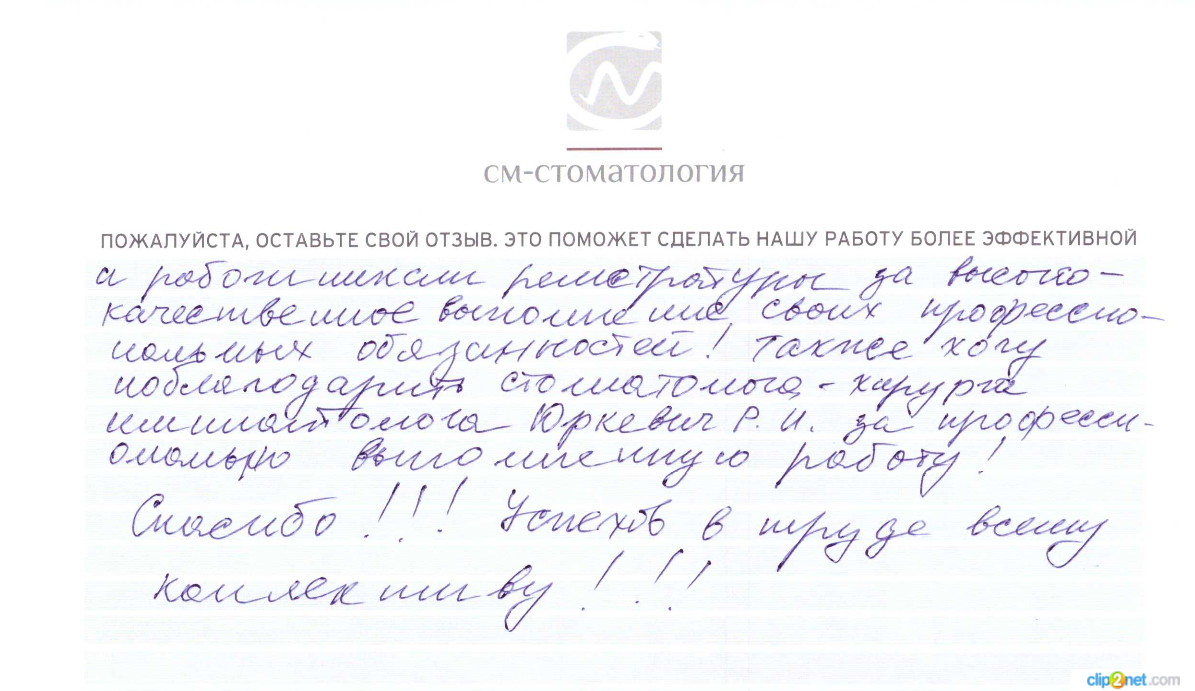 см-стоматология
ПОЖАЛУЙСТА, ОСТАВЬТЕ СВОЙ ОТЗЫВ. ЭТО ПОМОЖЕТ СДЕЛАТЬ НАШУ РАБОТУ БОЛЕЕ ЭФФЕКТИВНОЙ
и работникам регистратуры за высоко-
качественное выполнение своих профессио-
нальных обязанностей! Также хочу
поблагодарить стоматолога-хирурга
имплантолога Юркевич Р. И. за професси-
ональную выполненную работу!
Спасибо!!! Успехов в труде всему
коллективу!!!
clip2net.com